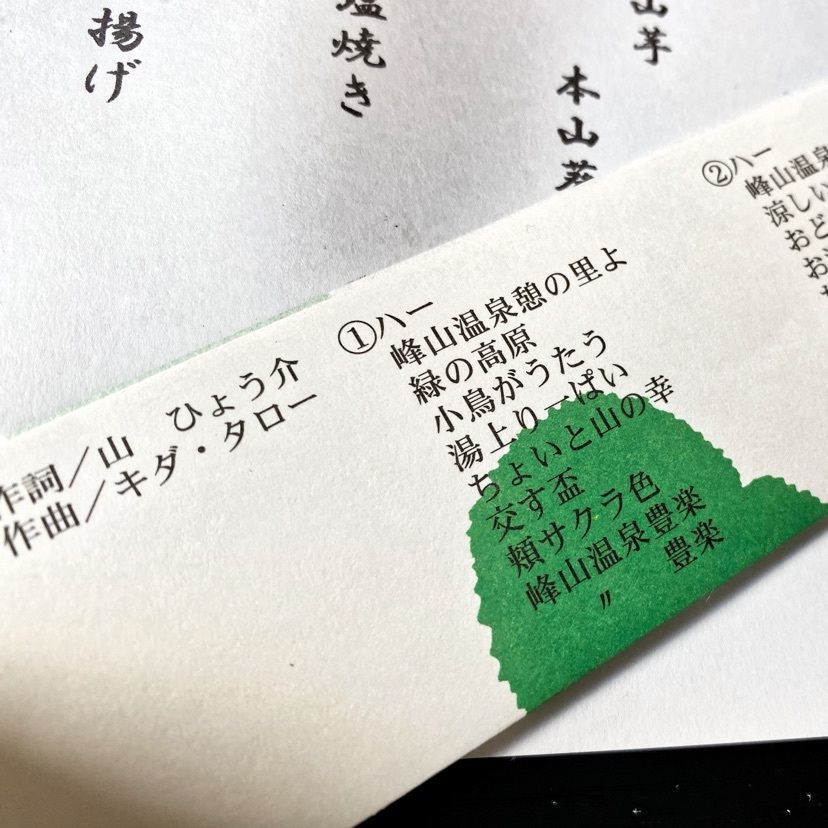 揚げ
塩焼き
山芋
本山葵
作詞／山　ひょう介
作曲／キダ・タロー
①ハー
峰山温泉憩の里よ
緑の高原
小鳥がうたう
湯上りーぱい
ちょいと山の幸
交す盃
頬サクラ色
峰山温泉豊楽
〃　豊楽
②ハー
峰山温泉
涼しい
おど
お